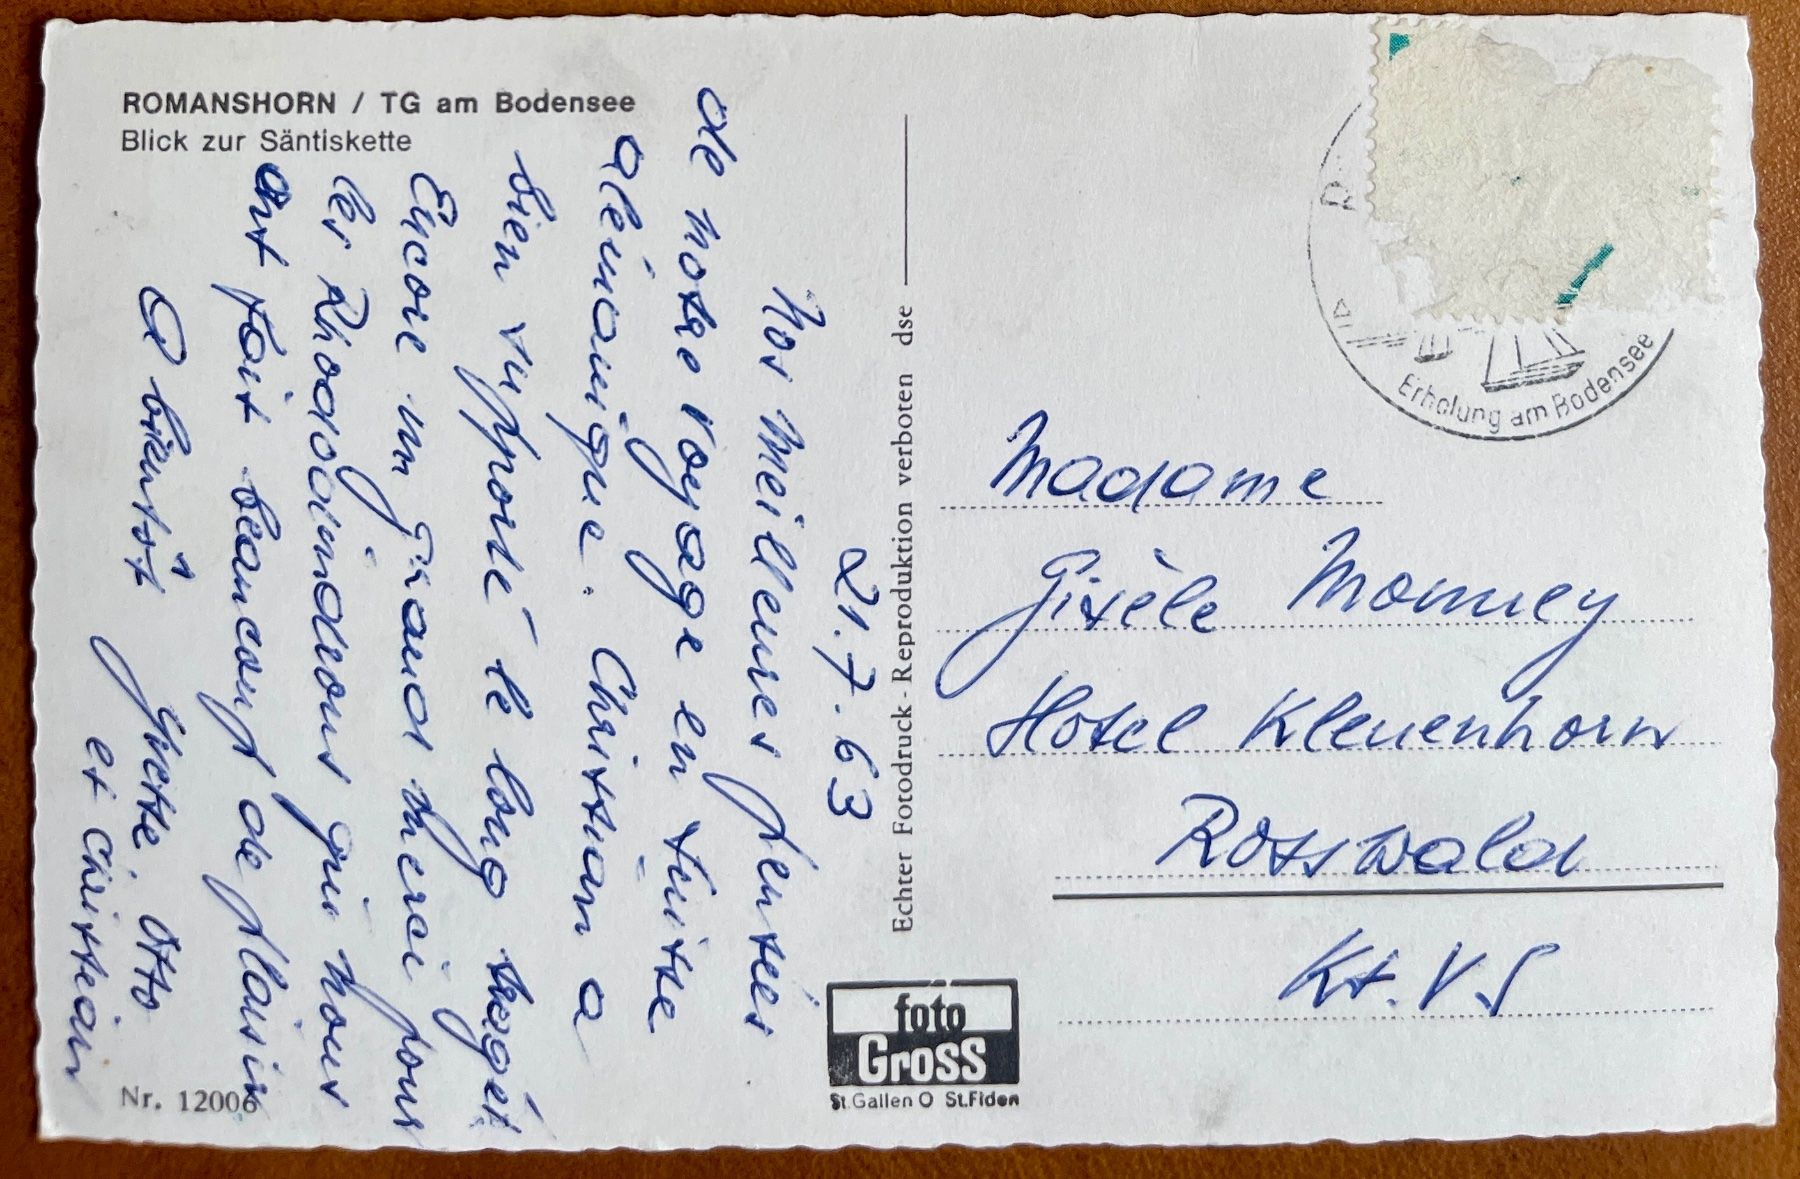 ROMANSHORN / TG am Bodensee
Blick zur Säntiskette
21.7.63
Nos meilleures pensées
de notre voyage en Suisse
alémanique. Christian a
bien supporté le long trajet
Encore un grand merci pour
les Rhododendrons qui nous
ont fait beaucoup de plaisir
A bientôt
Yvette Otto
et Christian
Nr. 12006
Echter Fotodruck - Reproduktion verboten dse
foto
Gross
St.Gallen O St.Fiden
Erholung am Bodensee
Madame
Gisèle Monney
Hotel Klenenhorn
Rosswald
Kt. VS